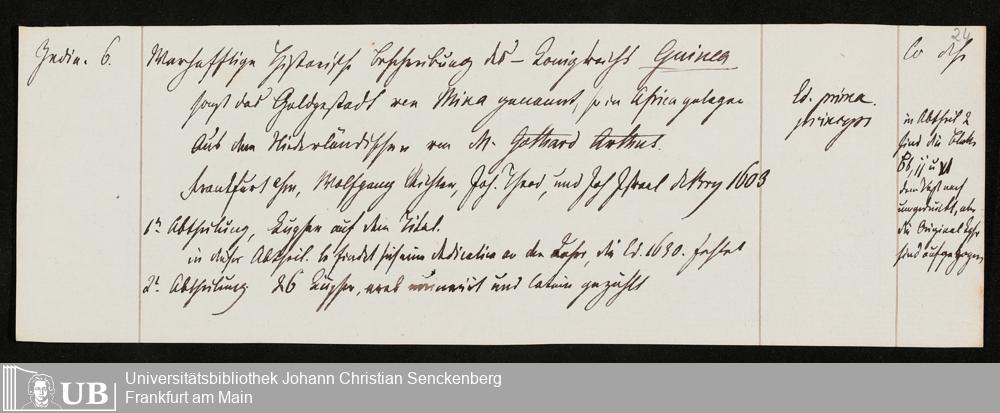 24
India. 6.
Warhafftige Historische Beschreibung des Königreichs Guinea
sonst das Goldgestadt von Mina genannt, so in Africa gelegen
Aus dem Niederländischen von M. Gothard Arthus.
Frankfurt Wolfgang Richter, Joh. Theod. und Joh Israel de Bry 1603
1t Abtheilung, Kupfer auf dem Titel.
in dieser Abtheil. befindet sich eine dedication an den die Ed. 1630. fehlet
2t Abtheilung 26 Kupfer, arab numerirt und latein gezählt
Ed. prima.
princeps
Co
in Abtheil 2
sind die
u VI
dem nach
umgedruckt, aber
die Original
sind aufgezogen
UB
Universitätsbibliothek Johann Christian Senckenberg
Frankfurt am Main